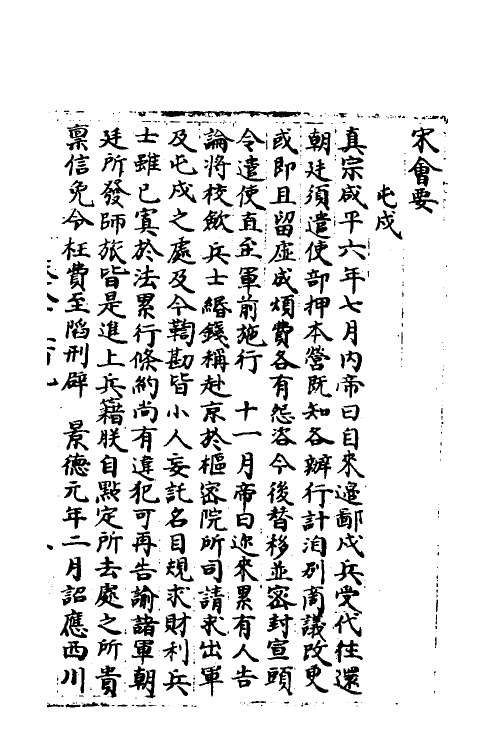 宋會要
屯戍
真宗咸平六年七月內帝曰自來邊鄙戍兵受代往還
朝廷須遣使部押本營既知各辦行計洎列商議改更
或即且留虛成煩費各有怨咨今後替移並密封宣頭
令遣使直至軍前施行 十一月帝曰迩來累有人告
論將校歛兵士緡錢稱赴京於樞密院所司請求出軍
及屯戍之處及令鞫勘皆小人妄託名目規求財利兵
士雖已寘於法累行條約尚有違犯可再告諭諸軍朝
廷所發師旅皆是進上兵籍朕自點定所去處之所貴
稟信免令枉費至陷刑辟 景德元年二月詔應西川